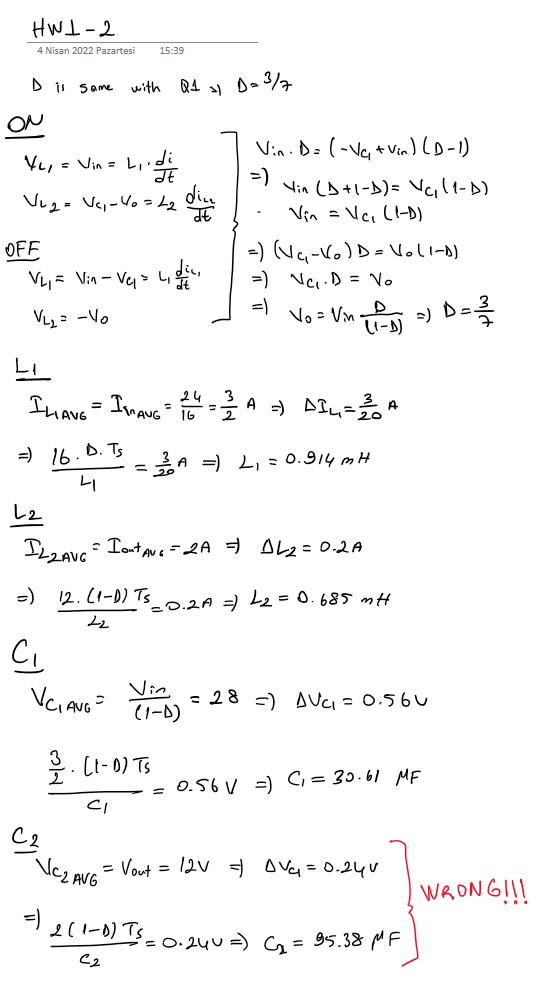 HW1-2
4 Nisan 2022 Pazartesi 15:39
D is same with Q1 => D = 3/7
ON
V_L1 = Vin = L1 · di/dt
V_L2 = V_C1 - Vo = L2 di_L2/dt
OFF
V_L1 = Vin - V_C1 = L1 di_L1/dt
V_L2 = -Vo
Vin · D = (-V_C1 + Vin)(D-1)
=> Vin (D+1-D) = V_C1 (1-D)
· Vin = V_C1 (1-D)
=> (V_C1 - Vo) D = Vo (1-D)
=> V_C1 · D = Vo
=> Vo = Vin D/(1-D) => D = 3/7
L1
I_L1AVG = I_inAVG = 24/16 = 3/2 A => ΔI_L1 = 3/20 A
=> 16 · D · Ts/L1 = 3/20 A => L1 = 0.914 mH
L2
I_L2AVG = I_outAVG = 2A => ΔL2 = 0.2A
=> 12 · (1-D) Ts/L2 = 0.2A => L2 = 0.685 mH
C1
V_C1AVG = Vin/(1-D) = 28 => ΔV_C1 = 0.56V
3/2 · (1-D) Ts/C1 = 0.56 V => C1 = 30.61 µF
C2
V_C2AVG = Vout = 12V => ΔV_C1 = 0.24V
=> 2(1-D) Ts/C2 = 0.24V => C2 = 95.38 µF
WRONG!!!